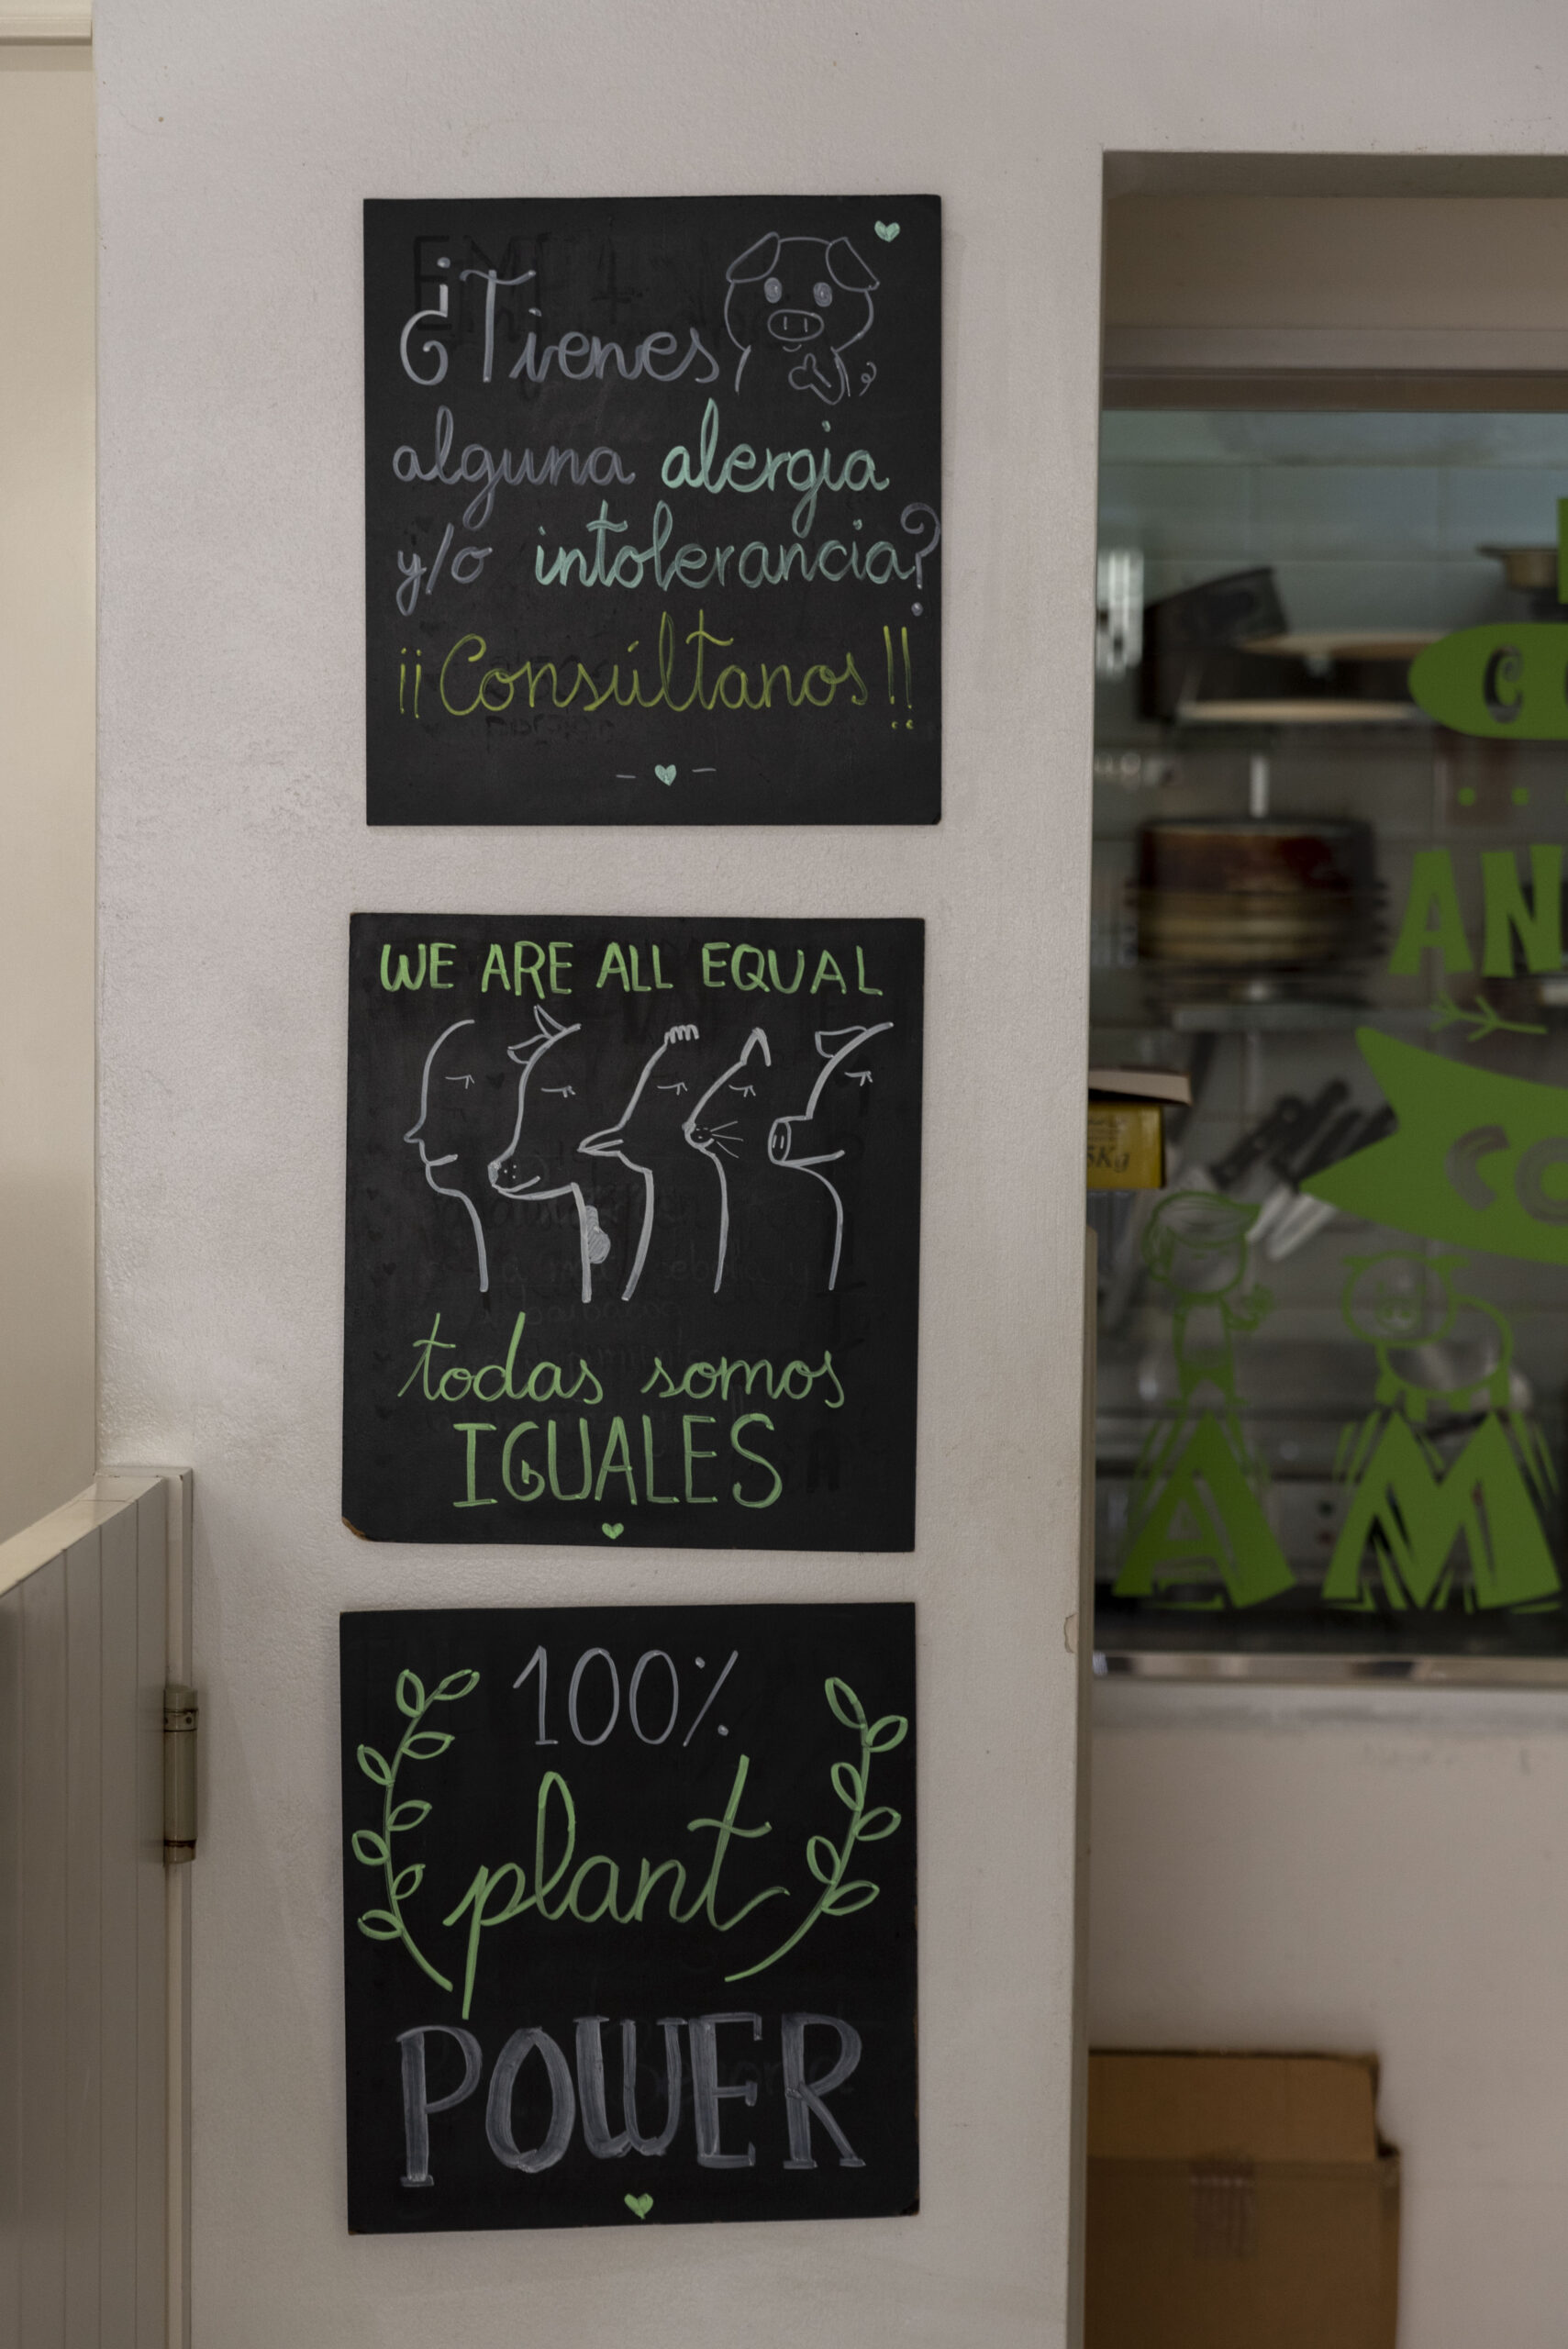 ¿Tienes
alguna alergia
y/o intolerancia?
¡¡Consúltanos!!
WE ARE ALL EQUAL
todas somos
IGUALES
100%
plant
POWER
C
AN
CO
AM
5Kg